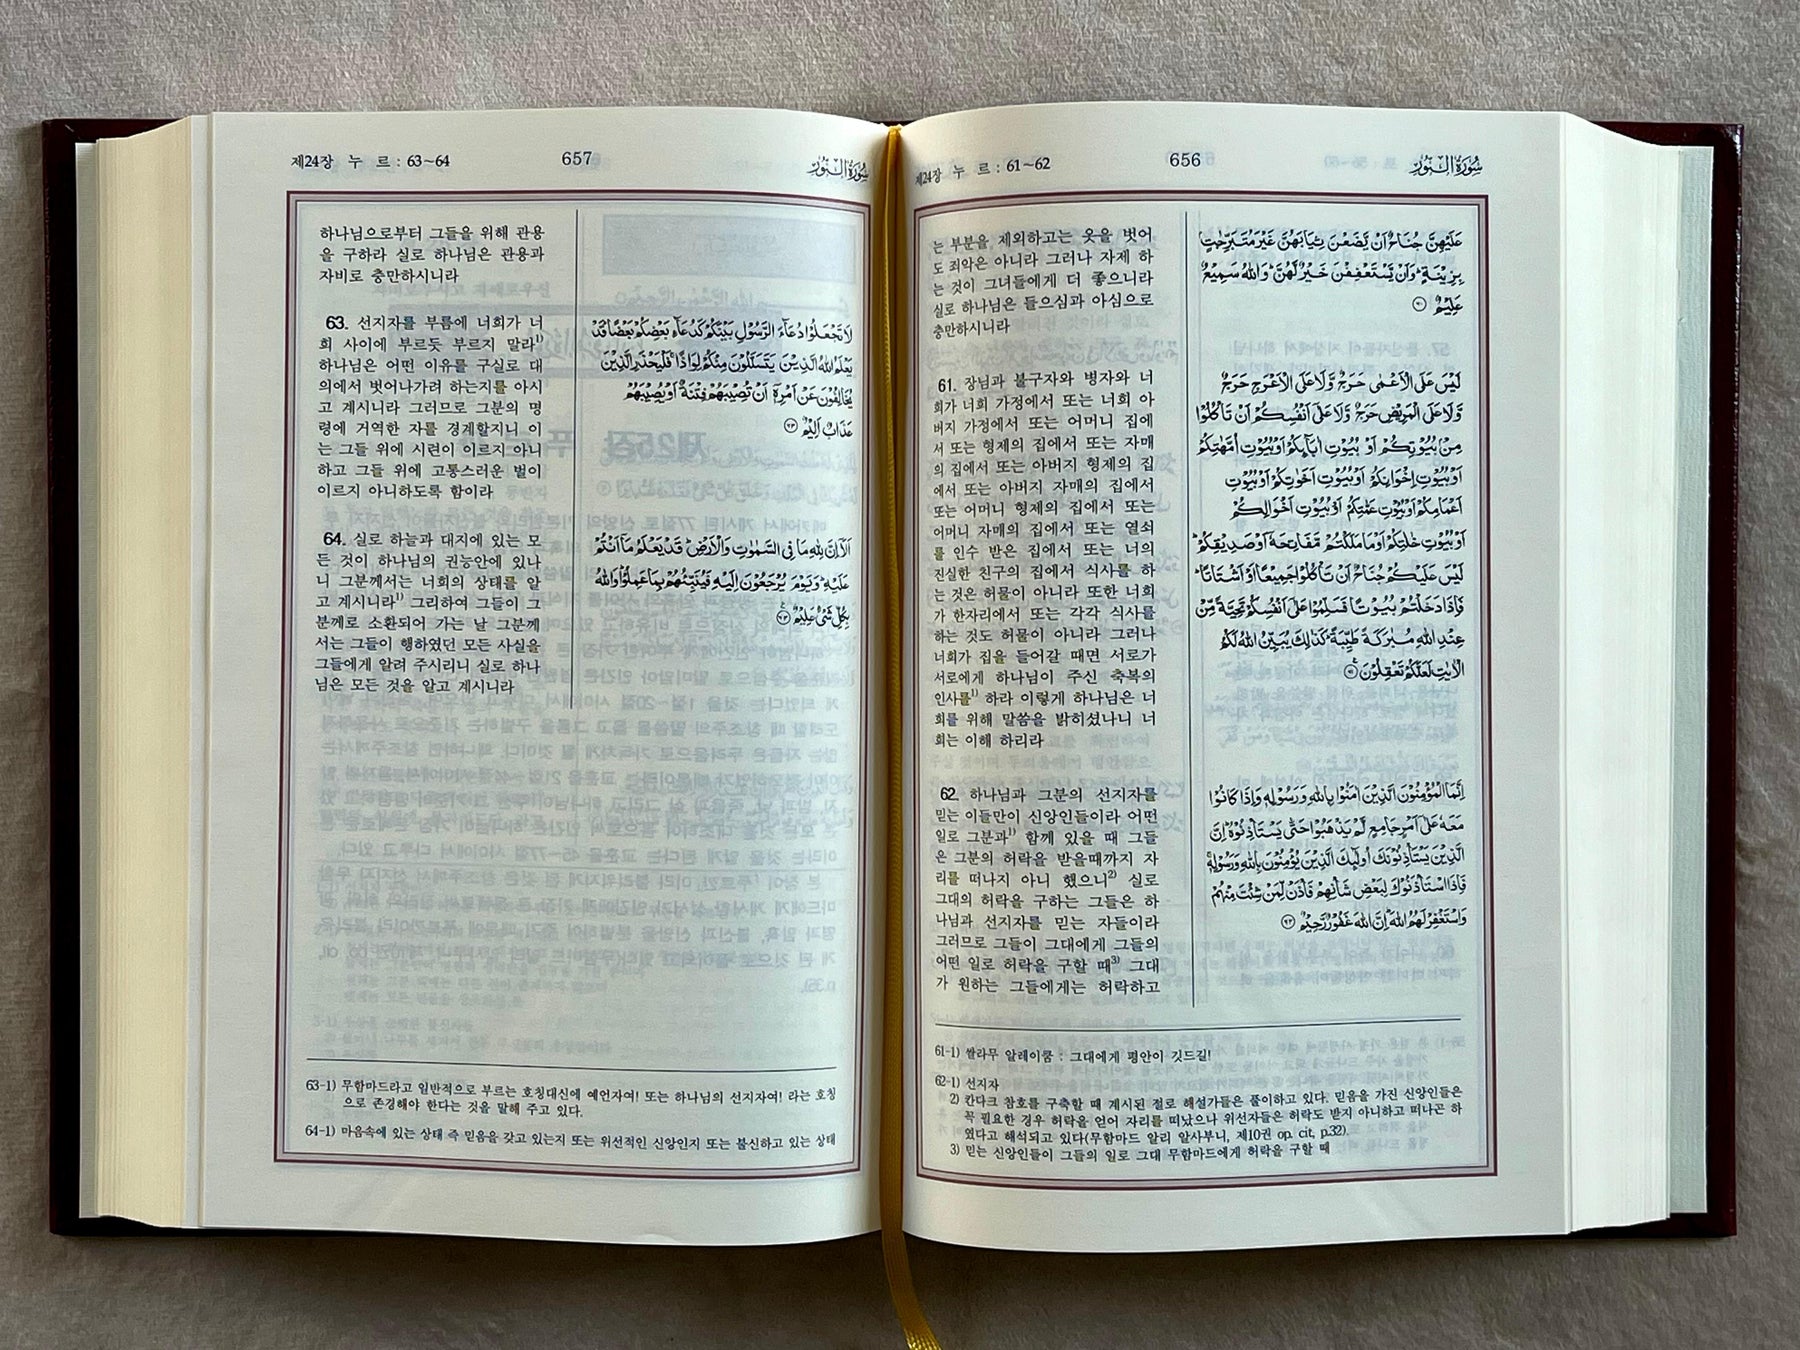 제24장 누 르 : 61~62
656
سُوْرَةُ النُّوْرِ
는 부분을 제외하고는 옷을 벗어
도 죄악은 아니라 그러나 자제 하
는 것이 그녀들에게 더 좋으니라
실로 하나님은 들으심과 아심으로
충만하시니라
61. 장님과 불구자와 병자와 너
희가 너희 가정에서 또는 너희 아
버지 가정에서 또는 어머니 집에
서 또는 형제의 집에서 또는 자매
의 집에서 또는 아버지 형제의 집
에서 또는 아버지 자매의 집에서
또는 어머니 형제의 집에서 또는
어머니 자매의 집에서 또는 열쇠
를 인수 받은 집에서 또는 너의
진실한 친구의 집에서 식사를 하
는 것은 허물이 아니라 또한 너희
가 한자리에서 또는 각각 식사를
하는 것도 허물이 아니라 그러나
너희가 집을 들어갈 때면 서로가
서로에게 하나님이 주신 축복의
인사를1) 하라 이렇게 하나님은 너
희를 위해 말씀을 밝히셨나니 너
희는 이해 하리라
62. 하나님과 그분의 선지자를
믿는 이들만이 신앙인들이라 어떤
일로 그분과1) 함께 있을 때 그들
은 그분의 허락을 받을때까지 자
리를 떠나지 아니 했으니2) 실로
그대의 허락을 구하는 그들은 하
나님과 선지자를 믿는 자들이라
그러므로 그들이 그대에게 그들의
어떤 일로 허락을 구할 때3) 그대
가 원하는 그들에게는 허락하고
عَلَيْهِنَّ جُنَاحٌ اَنْ يَّضَعْنَ ثِيَابَهُنَّ غَيْرَ مُتَبَرِّجٰتٍۭ
بِزِيْنَةٍ ؕ وَاَنْ يَّسْتَعْفِفْنَ خَيْرٌ لَّهُنَّ ؕ وَاللّٰهُ سَمِيْعٌ
عَلِيْمٌ ۝۶۰
لَيْسَ عَلَى الْاَعْمٰى حَرَجٌ وَّلَا عَلَى الْاَعْرَجِ حَرَجٌ
وَّلَا عَلَى الْمَرِيْضِ حَرَجٌ وَّلَا عَلٰٓى اَنْفُسِكُمْ اَنْ تَاْكُلُوْا
مِنْۢ بُيُوْتِكُمْ اَوْ بُيُوْتِ اٰبَآئِكُمْ اَوْ بُيُوْتِ اُمَّهٰتِكُمْ
اَوْ بُيُوْتِ اِخْوَانِكُمْ اَوْ بُيُوْتِ اَخَوٰتِكُمْ اَوْ بُيُوْتِ
اَعْمَامِكُمْ اَوْ بُيُوْتِ عَمّٰتِكُمْ اَوْ بُيُوْتِ اَخْوَالِكُمْ
اَوْ بُيُوْتِ خٰلٰتِكُمْ اَوْ مَا مَلَكْتُمْ مَّفَاتِحَهٗٓ اَوْ صَدِيْقِكُمْ ؕ
لَيْسَ عَلَيْكُمْ جُنَاحٌ اَنْ تَاْكُلُوْا جَمِيْعًا اَوْ اَشْتَاتًا ؕ
فَاِذَا دَخَلْتُمْ بُيُوْتًا فَسَلِّمُوْا عَلٰٓى اَنْفُسِكُمْ تَحِيَّةً مِّنْ
عِنْدِ اللّٰهِ مُبٰرَكَةً طَيِّبَةً ؕ كَذٰلِكَ يُبَيِّنُ اللّٰهُ لَكُمُ
الْاٰيٰتِ لَعَلَّكُمْ تَعْقِلُوْنَ ۝۶۱
اِنَّمَا الْمُؤْمِنُوْنَ الَّذِيْنَ اٰمَنُوْا بِاللّٰهِ وَرَسُوْلِهٖ وَاِذَا كَانُوْا
مَعَهٗ عَلٰٓى اَمْرٍ جَامِعٍ لَّمْ يَذْهَبُوْا حَتّٰى يَسْتَاْذِنُوْهُ ؕ اِنَّ
الَّذِيْنَ يَسْتَاْذِنُوْنَكَ اُولٰٓئِكَ الَّذِيْنَ يُؤْمِنُوْنَ بِاللّٰهِ وَرَسُوْلِهٖ ۚ
فَاِذَا اسْتَاْذَنُوْكَ لِبَعْضِ شَاْنِهِمْ فَاْذَنْ لِّمَنْ شِئْتَ مِنْهُمْ
وَاسْتَغْفِرْ لَهُمُ اللّٰهَ ؕ اِنَّ اللّٰهَ غَفُوْرٌ رَّحِيْمٌ ۝۶۲
61-1) 쌀라무 알레이쿰 : 그대에게 평안이 깃드길!
62-1) 선지자
2) 칸다크 참호를 구축할 때 계시된 절로 해설가들은 풀이하고 있다. 믿음을 가진 신앙인들은
꼭 필요한 경우 허락을 얻어 자리를 떠났으나 위선자들은 허락도 받지 아니하고 떠나곤 하
였다고 해석되고 있다(무함마드 알리 알사부니, 제10권 op. cit, p.32).
3) 믿는 신앙인들이 그들의 일로 그대 무함마드에게 허락을 구할 때
제24장 누 르 : 63~64
657
سُوْرَةُ النُّوْرِ
하나님으로부터 그들을 위해 관용
을 구하라 실로 하나님은 관용과
자비로 충만하시니라
63. 선지자를 부름에 너희가 너
희 사이에 부르듯 부르지 말라1)
하나님은 어떤 이유를 구실로 대
의에서 벗어나가려 하는지를 아시
고 계시니라 그러므로 그분의 명
령에 거역한 자를 경계할지니 이
는 그들 위에 시련이 이르지 아니
하고 그들 위에 고통스러운 벌이
이르지 아니하도록 함이라
64. 실로 하늘과 대지에 있는 모
든 것이 하나님의 권능안에 있나
니 그분께서는 너희의 상태를 알
고 계시니라1) 그리하여 그들이 그
분께로 소환되어 가는 날 그분께
서는 그들이 행하였던 모든 사실을
그들에게 알려 주시리니 실로 하나
님은 모든 것을 알고 계시니라
لَا تَجْعَلُوْا دُعَآءَ الرَّسُوْلِ بَيْنَكُمْ كَدُعَآءِ بَعْضِكُمْ بَعْضًا ؕ قَدْ
يَعْلَمُ اللّٰهُ الَّذِيْنَ يَتَسَلَّلُوْنَ مِنْكُمْ لِوَاذًا ۚ فَلْيَحْذَرِ الَّذِيْنَ
يُخَالِفُوْنَ عَنْ اَمْرِهٖٓ اَنْ تُصِيْبَهُمْ فِتْنَةٌ اَوْ يُصِيْبَهُمْ
عَذَابٌ اَلِيْمٌ ۝۶۳
اَلَآ اِنَّ لِلّٰهِ مَا فِى السَّمٰوٰتِ وَالْاَرْضِ ؕ قَدْ يَعْلَمُ مَآ اَنْتُمْ
عَلَيْهِ ؕ وَيَوْمَ يُرْجَعُوْنَ اِلَيْهِ فَيُنَبِّئُهُمْ بِمَا عَمِلُوْا ؕ وَاللّٰهُ
بِكُلِّ شَىْءٍ عَلِيْمٌ ۝۶۴
63-1) 무함마드라고 일반적으로 부르는 호칭대신에 예언자여! 또는 하나님의 선지자여! 라는 호칭
으로 존경해야 한다는 것을 말해 주고 있다.
64-1) 마음속에 있는 상태 즉 믿음을 갖고 있는지 또는 위선적인 신앙인지 또는 불신하고 있는 상태